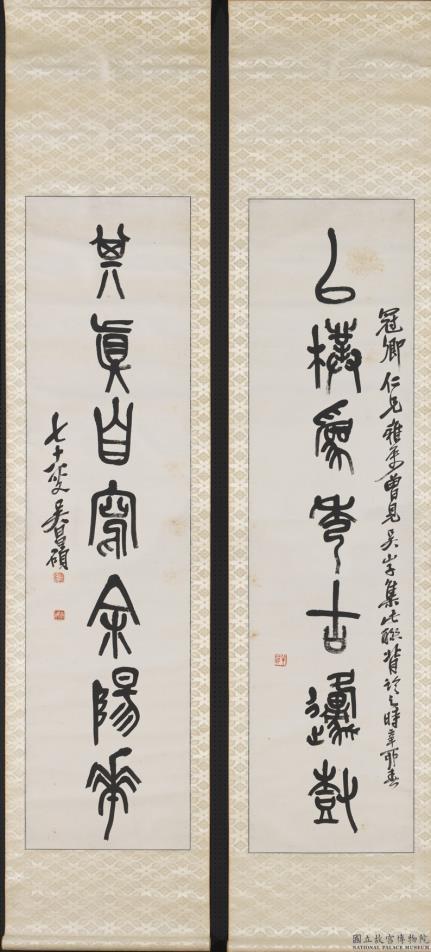 冠卿仁兄雅屬曾見吳山子集此聯背臨之時辛酉春
以樸為秀古邍尌
其真自寫余陽華
七十八叟吳昌碩
國立故宮博物院
NATIONAL PALACE MUSEUM